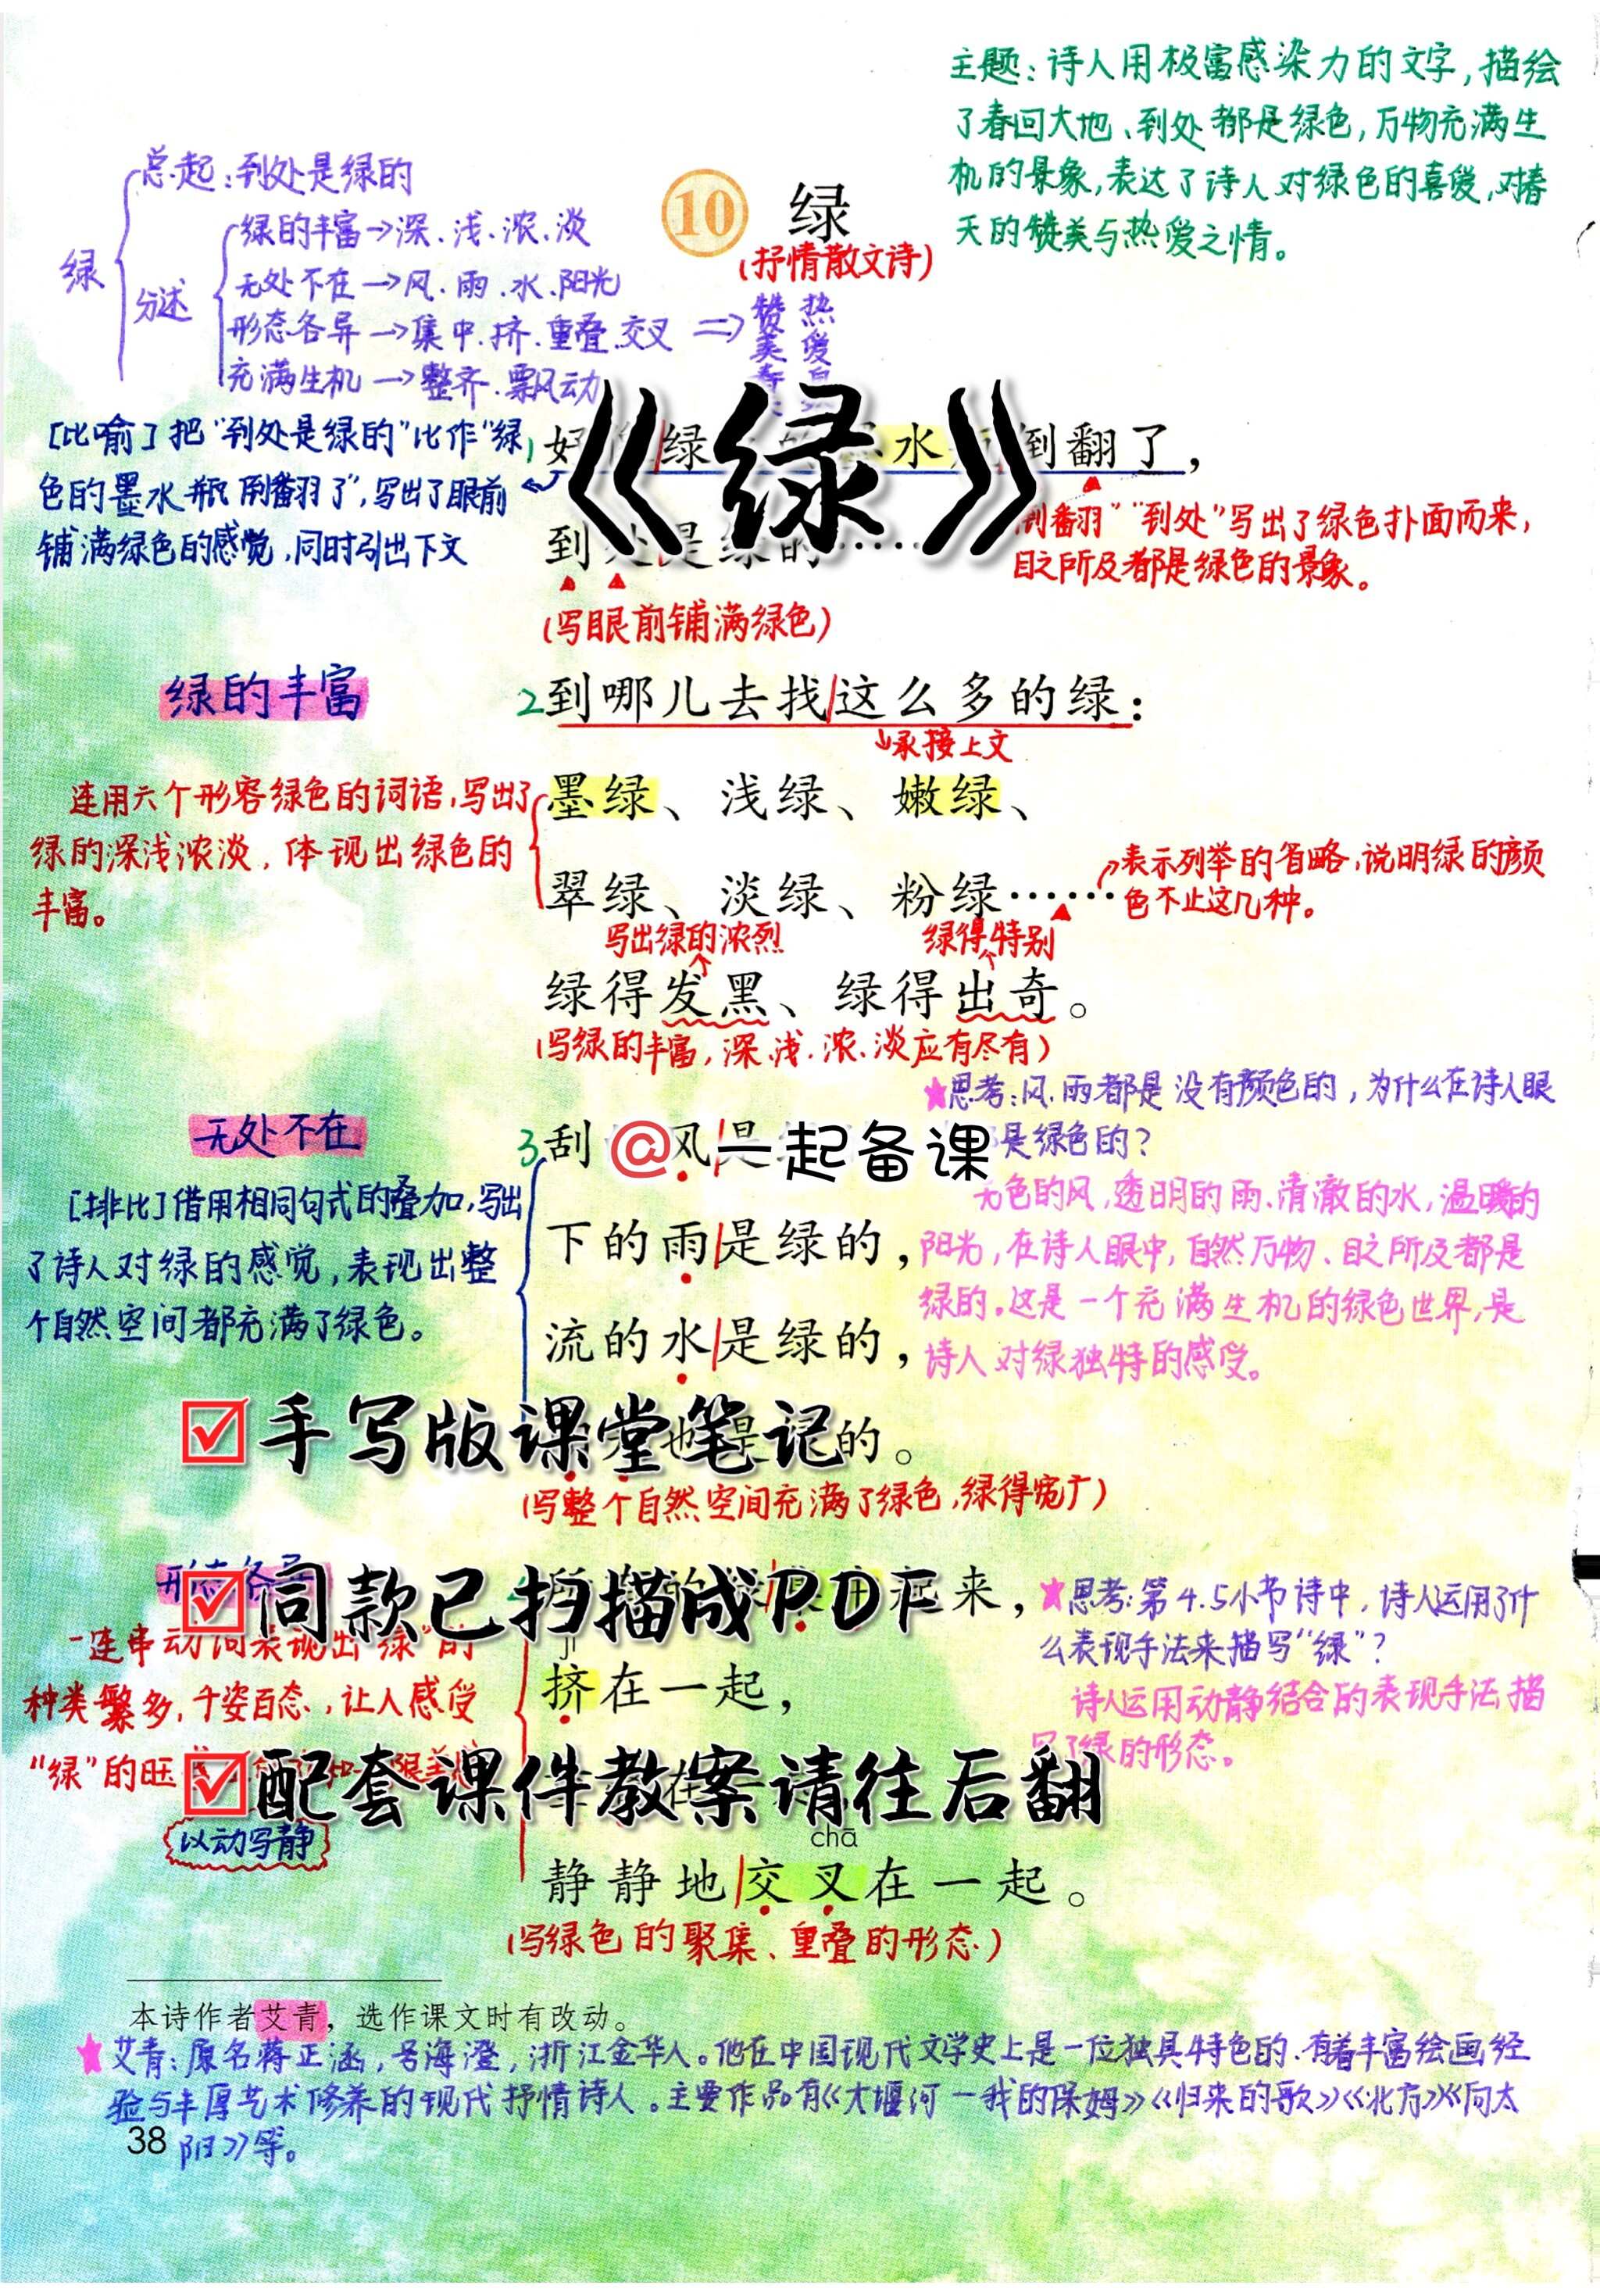 主题:诗人用极富感染力的文字,描绘
了春回大地、到处都是绿色,万物充满生
机的景象,表达了诗人对绿色的喜爱,对春
天的赞美与热爱之情。
总起:到处是绿的
绿的丰富→深、浅、浓、淡
绿
分述
无处不在→风、雨、水、阳光
形态各异→集中、挤、重叠、交叉
充满生机→整齐、飘动
⇒
赞美
热爱
10 绿
(抒情散文诗)
《绿》
[比喻]把"到处是绿的"比作"绿
色的墨水瓶倒翻了",写出了眼前
铺满绿色的感觉,同时引出下文
1 好 绿 水 倒翻了,
到处是绿的……
倒翻""到处"写出了绿色扑面而来,
目之所及都是绿色的景象。
(写眼前铺满绿色)
绿的丰富
2 到哪儿去找这么多的绿:
承接上文
连用六个形容绿色的词语,写出了
绿的深浅浓淡,体现出绿色的
丰富。
墨绿、浅绿、嫩绿、
翠绿、淡绿、粉绿……
表示列举的省略,说明绿的颜
色不止这几种。
写出绿的浓烈
绿得特别
绿得发黑、绿得出奇。
(写绿的丰富,深、浅、浓、淡应有尽有)
★思考:风、雨都是没有颜色的,为什么在诗人眼
是绿色的?
无色的风,透明的雨、清澈的水,温暖的
阳光,在诗人眼中,自然万物、目之所及都是
绿的。这是一个充满生机的绿色世界,是
诗人对绿独特的感受。
无处不在
[排比]借用相同句式的叠加,写出
了诗人对绿的感觉,表现出整
个自然空间都充满了绿色。
3 刮 风是
@一起备课
下的雨是绿的,
流的水是绿的,
也是 的。
(写整个自然空间充满了绿色,绿得宽广)
☑手写版课堂笔记
形态各异
☑同款已扫描成PDF
起来,
★思考:第4.5小节诗中,诗人运用了什
么表现手法来描写"绿"?
诗人运用动静结合的表现手法描
写了绿的形态。
一连串动词表现出"绿"的
种类繁多,千姿百态,让人感受
"绿"的旺
jǐ
挤在一起,
在
☑配套课件教案请往后翻
以动写静
chā
静静地交叉在一起。
(写绿色的聚集、重叠的形态)
本诗作者艾青,选作课文时有改动。
★艾青:原名蒋正涵,号海澄,浙江金华人。他在中国现代文学史上是一位独具特色的、有着丰富绘画经
验与丰厚艺术修养的现代抒情诗人。主要作品有《大堰河—我的保姆》《归来的歌》《北方》《向太
阳》等。
38